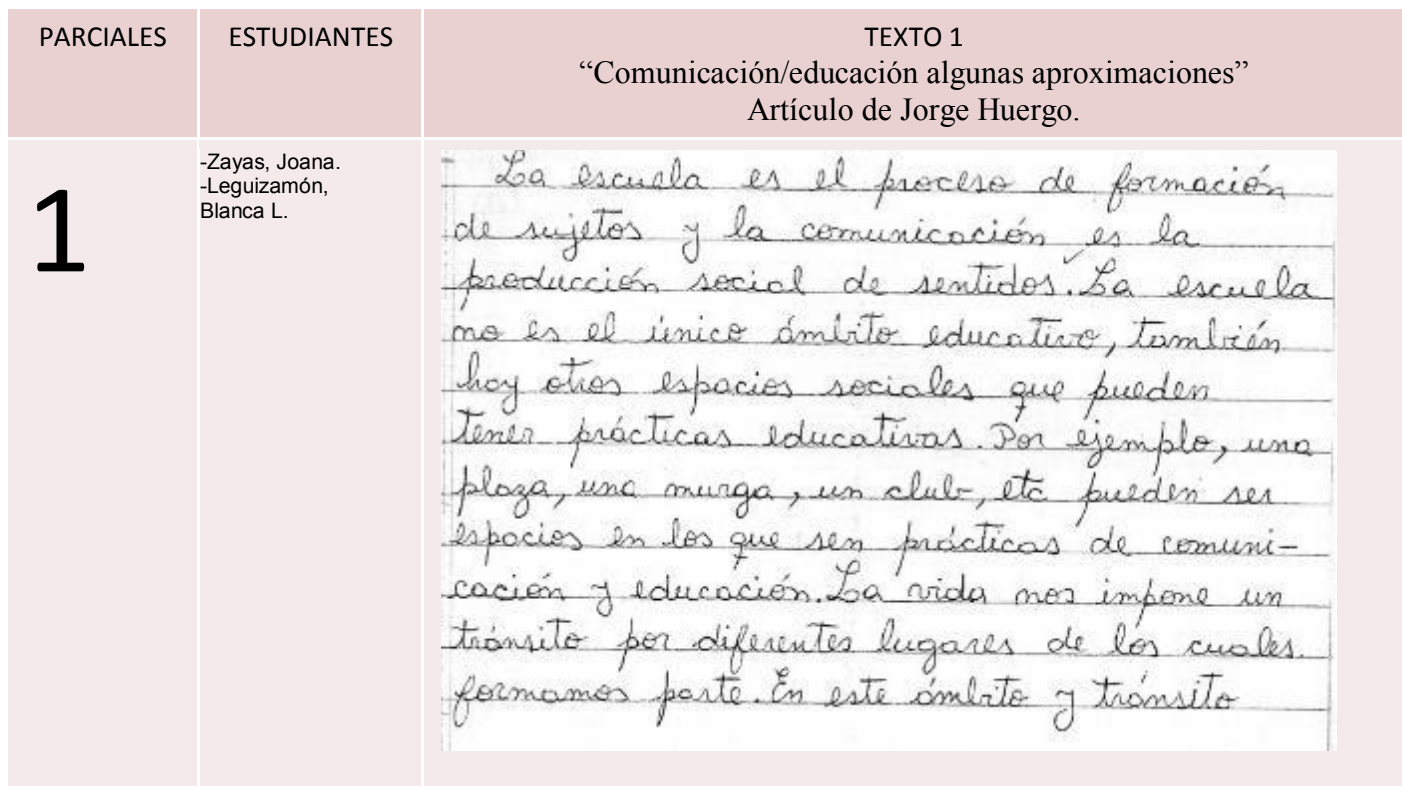 PARCIALES
ESTUDIANTES
TEXTO 1
“Comunicación/educación algunas aproximaciones”
Artículo de Jorge Huergo.
1
-Zayas, Joana.
-Leguizamón,
Blanca L.
La escuela es el proceso de formación
de sujetos y la comunicación es la
producción social de sentidos. La escuela
no es el único ámbito educativo, también
hay otros espacios sociales que pueden
tener prácticas educativas. Por ejemplo, una
plaza, una murga, un club, etc pueden ser
espacios en los que sen prácticas de comuni-
cación y educación. La vida nos impone un
tránsito por diferentes lugares de los cuales
formamos parte. En este ámbito y tránsito